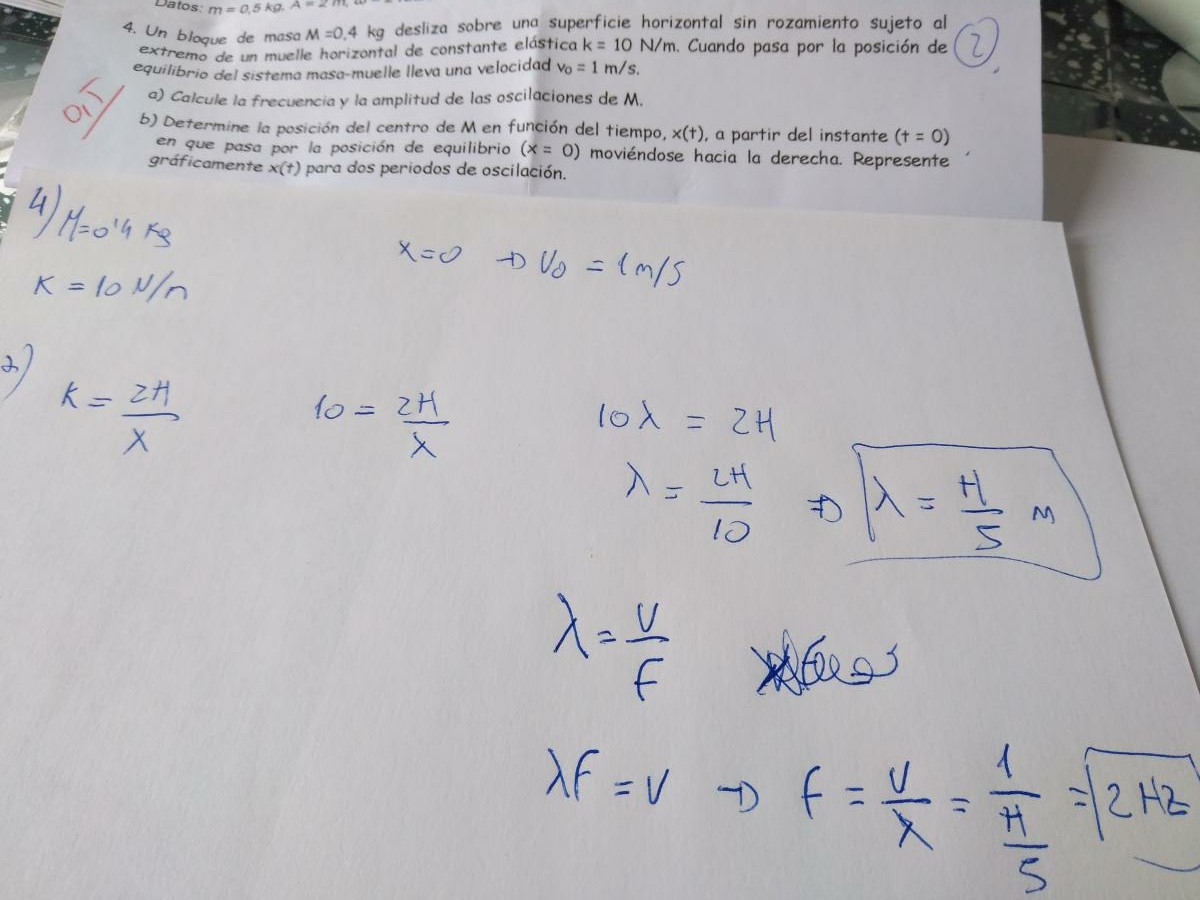 Datos: m = 0,5 kg, A = 2 m,
4. Un bloque de masa M =0,4 kg desliza sobre una superficie horizontal sin rozamiento sujeto al
extremo de un muelle horizontal de constante elástica k = 10 N/m. Cuando pasa por la posición de
equilibrio del sistema masa-muelle lleva una velocidad v₀ = 1 m/s.
2
a) Calcule la frecuencia y la amplitud de las oscilaciones de M.
b) Determine la posición del centro de M en función del tiempo, x(t), a partir del instante (t = 0)
en que pasa por la posición de equilibrio (x = 0) moviéndose hacia la derecha. Represente
gráficamente x(t) para dos periodos de oscilación.
4) M=0'4 Kg
x=0 → V₀ = 1m/s
K = 10 N/m
a)
K = 2π/λ 10 = 2π/λ 10λ = 2π
λ = 2π/10 ⇒ λ = π/5 m
λ = V/F
λF = V → F = V/λ = 1/(π/5) = 2 Hz